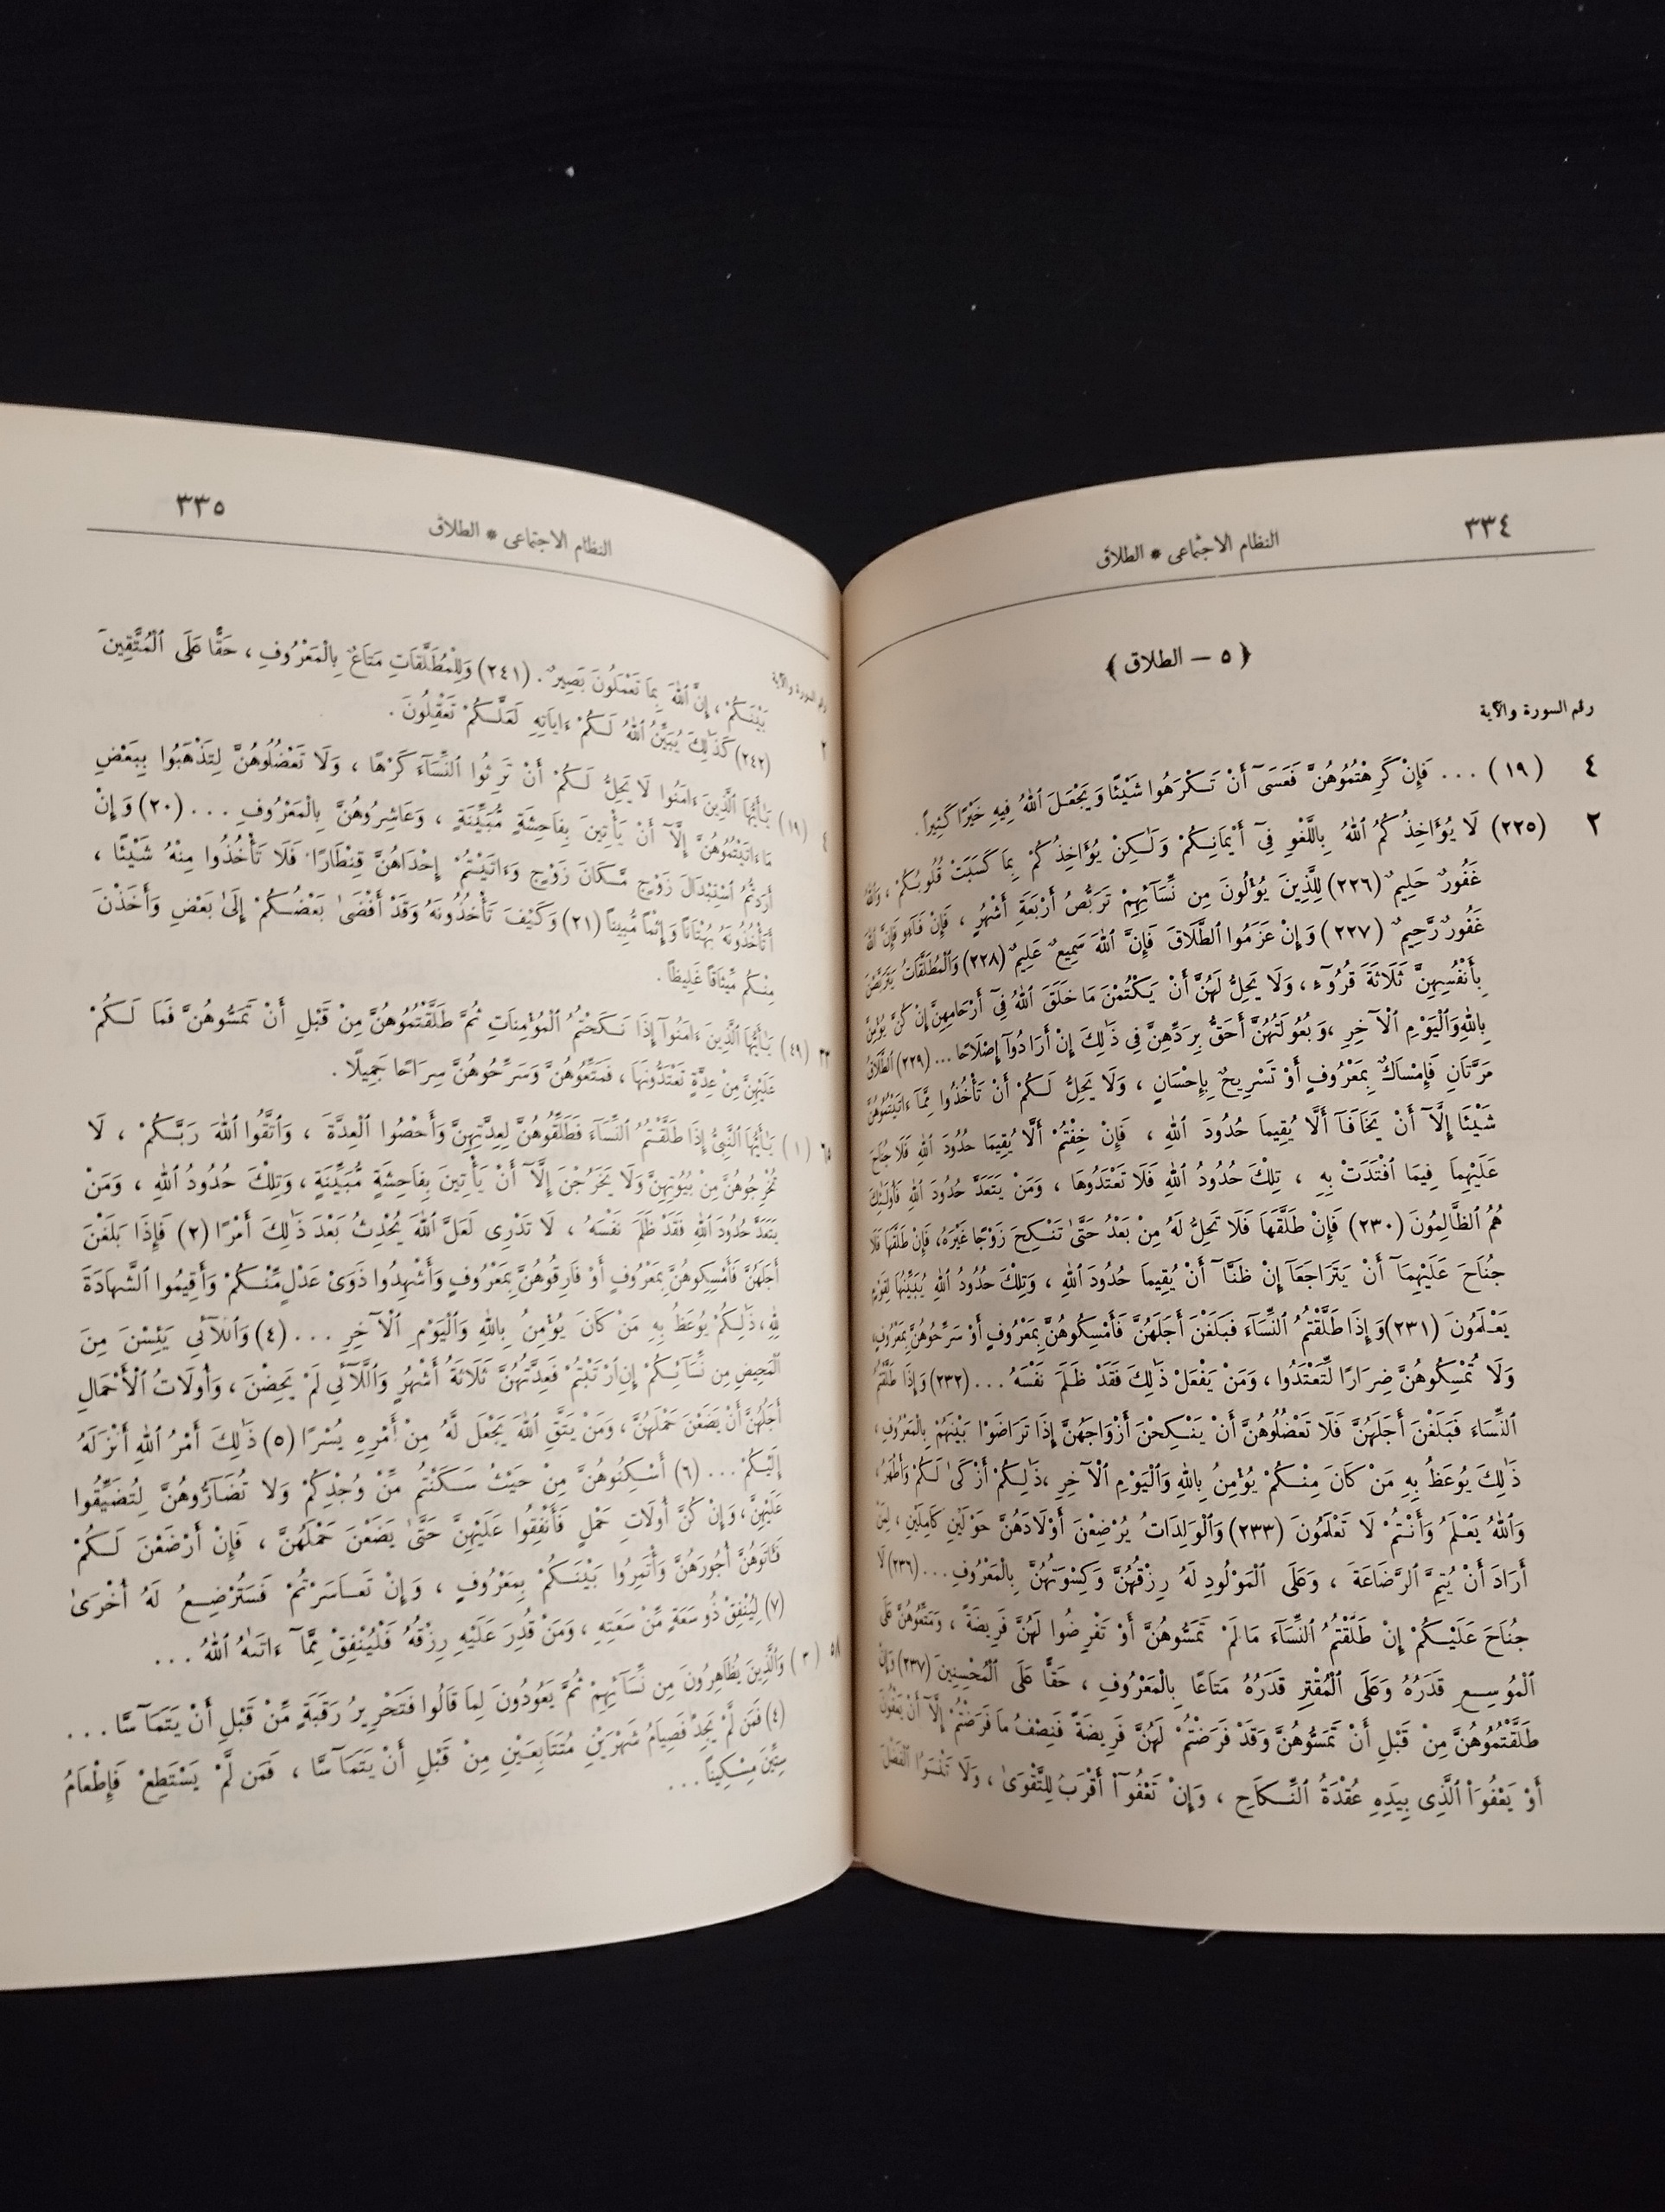 ٣٣٤
النظام الاجتماعى * الطلاق
﴿ ٥ – الطلاق ﴾
رقم السورة والآية
٤ (١٩) ... فَإِنْ كَرِهْتُمُوهُنَّ فَعَسَىٰٓ أَنْ تَكْرَهُوا شَيْئًا وَيَجْعَلَ ٱللَّهُ فِيهِ خَيْرًا كَثِيرًا .
٢ (٢٢٥) لَا يُؤَاخِذُكُمُ ٱللَّهُ بِٱللَّغْوِ فِىٓ أَيْمَانِكُمْ وَلَٰكِنْ يُؤَاخِذُكُمْ بِمَا كَسَبَتْ قُلُوبُكُمْ ، وَٱللَّهُ
غَفُورٌ حَلِيمٌ (٢٢٦) لِلَّذِينَ يُؤْلُونَ مِن نِّسَآئِهِمْ تَرَبُّصُ أَرْبَعَةِ أَشْهُرٍ ، فَإِنْ فَآءُو فَإِنَّ ٱللَّهَ
غَفُورٌ رَّحِيمٌ (٢٢٧) وَإِنْ عَزَمُوا ٱلطَّلَاقَ فَإِنَّ ٱللَّهَ سَمِيعٌ عَلِيمٌ (٢٢٨) وَٱلْمُطَلَّقَاتُ يَتَرَبَّصْنَ
بِأَنْفُسِهِنَّ ثَلَاثَةَ قُرُوٓءٍ ، وَلَا يَحِلُّ لَهُنَّ أَنْ يَكْتُمْنَ مَا خَلَقَ ٱللَّهُ فِىٓ أَرْحَامِهِنَّ إِنْ كُنَّ يُؤْمِنَّ
بِٱللَّهِ وَٱلْيَوْمِ ٱلْآخِرِ ، وَبُعُولَتُهُنَّ أَحَقُّ بِرَدِّهِنَّ فِى ذَٰلِكَ إِنْ أَرَادُوٓا إِصْلَاحًا ... (٢٢٩) ٱلطَّلَاقُ
مَرَّتَانِ فَإِمْسَاكٌ بِمَعْرُوفٍ أَوْ تَسْرِيحٌ بِإِحْسَانٍ ، وَلَا يَحِلُّ لَكُمْ أَنْ تَأْخُذُوا مِمَّآ ءَاتَيْتُمُوهُنَّ
شَيْئًا إِلَّآ أَنْ يَخَافَآ أَلَّا يُقِيمَا حُدُودَ ٱللَّهِ ، فَإِنْ خِفْتُمْ أَلَّا يُقِيمَا حُدُودَ ٱللَّهِ فَلَا جُنَاحَ
عَلَيْهِمَا فِيمَا ٱفْتَدَتْ بِهِ ، تِلْكَ حُدُودُ ٱللَّهِ فَلَا تَعْتَدُوهَا ، وَمَنْ يَتَعَدَّ حُدُودَ ٱللَّهِ فَأُولَٰئِكَ
هُمُ ٱلظَّالِمُونَ (٢٣٠) فَإِنْ طَلَّقَهَا فَلَا تَحِلُّ لَهُ مِنْ بَعْدُ حَتَّىٰ تَنْكِحَ زَوْجًا غَيْرَهُ ، فَإِنْ طَلَّقَهَا فَلَا
جُنَاحَ عَلَيْهِمَآ أَنْ يَتَرَاجَعَآ إِنْ ظَنَّآ أَنْ يُقِيمَا حُدُودَ ٱللَّهِ ، وَتِلْكَ حُدُودُ ٱللَّهِ يُبَيِّنُهَا لِقَوْمٍ
يَعْلَمُونَ (٢٣١) وَإِذَا طَلَّقْتُمُ ٱلنِّسَآءَ فَبَلَغْنَ أَجَلَهُنَّ فَأَمْسِكُوهُنَّ بِمَعْرُوفٍ أَوْ سَرِّحُوهُنَّ بِمَعْرُوفٍ
وَلَا تُمْسِكُوهُنَّ ضِرَارًا لِّتَعْتَدُوا ، وَمَنْ يَفْعَلْ ذَٰلِكَ فَقَدْ ظَلَمَ نَفْسَهُ ... (٢٣٢) وَإِذَا طَلَّقْتُمُ
ٱلنِّسَآءَ فَبَلَغْنَ أَجَلَهُنَّ فَلَا تَعْضُلُوهُنَّ أَنْ يَنْكِحْنَ أَزْوَاجَهُنَّ إِذَا تَرَاضَوْا بَيْنَهُمْ بِٱلْمَعْرُوفِ ،
ذَٰلِكَ يُوعَظُ بِهِ مَنْ كَانَ مِنْكُمْ يُؤْمِنُ بِٱللَّهِ وَٱلْيَوْمِ ٱلْآخِرِ ، ذَٰلِكُمْ أَزْكَىٰ لَكُمْ وَأَطْهَرُ ،
وَٱللَّهُ يَعْلَمُ وَأَنْتُمْ لَا تَعْلَمُونَ (٢٣٣) وَٱلْوَٰلِدَاتُ يُرْضِعْنَ أَوْلَادَهُنَّ حَوْلَيْنِ كَامِلَيْنِ ، لِمَنْ
أَرَادَ أَنْ يُتِمَّ ٱلرَّضَاعَةَ ، وَعَلَى ٱلْمَوْلُودِ لَهُ رِزْقُهُنَّ وَكِسْوَتُهُنَّ بِٱلْمَعْرُوفِ ... (٢٣٦) لَا
جُنَاحَ عَلَيْكُمْ إِنْ طَلَّقْتُمُ ٱلنِّسَآءَ مَا لَمْ تَمَسُّوهُنَّ أَوْ تَفْرِضُوا لَهُنَّ فَرِيضَةً ، وَمَتِّعُوهُنَّ عَلَى
ٱلْمُوسِعِ قَدَرُهُ وَعَلَى ٱلْمُقْتِرِ قَدَرُهُ مَتَاعًا بِٱلْمَعْرُوفِ ، حَقًّا عَلَى ٱلْمُحْسِنِينَ (٢٣٧) وَإِنْ
طَلَّقْتُمُوهُنَّ مِنْ قَبْلِ أَنْ تَمَسُّوهُنَّ وَقَدْ فَرَضْتُمْ لَهُنَّ فَرِيضَةً فَنِصْفُ مَا فَرَضْتُمْ إِلَّآ أَنْ يَعْفُونَ
أَوْ يَعْفُوَا۟ ٱلَّذِى بِيَدِهِ عُقْدَةُ ٱلنِّكَاحِ ، وَإِنْ تَعْفُوٓا۟ أَقْرَبُ لِلتَّقْوَىٰ ، وَلَا تَنْسَوُا ٱلْفَضْلَ
٣٣٥
النظام الاجتماعى * الطلاق
رقم السورة والآية
بَيْنَكُمْ ، إِنَّ ٱللَّهَ بِمَا تَعْمَلُونَ بَصِيرٌ . (٢٤١) وَلِلْمُطَلَّقَاتِ مَتَاعٌ بِٱلْمَعْرُوفِ ، حَقًّا عَلَى ٱلْمُتَّقِينَ
٢ (٢٤٢) كَذَٰلِكَ يُبَيِّنُ ٱللَّهُ لَكُمْ ءَايَاتِهِ لَعَلَّكُمْ تَعْقِلُونَ .
٤ (١٩) يَٰٓأَيُّهَا ٱلَّذِينَ ءَامَنُوا لَا يَحِلُّ لَكُمْ أَنْ تَرِثُوا ٱلنِّسَآءَ كَرْهًا ، وَلَا تَعْضُلُوهُنَّ لِتَذْهَبُوا بِبَعْضِ
مَا ءَاتَيْتُمُوهُنَّ إِلَّآ أَنْ يَأْتِينَ بِفَاحِشَةٍ مُّبَيِّنَةٍ ، وَعَاشِرُوهُنَّ بِٱلْمَعْرُوفِ ... (٢٠) وَإِنْ
أَرَدْتُمُ ٱسْتِبْدَالَ زَوْجٍ مَّكَانَ زَوْجٍ وَءَاتَيْتُمْ إِحْدَاهُنَّ قِنْطَارًا فَلَا تَأْخُذُوا مِنْهُ شَيْئًا ،
أَتَأْخُذُونَهُ بُهْتَانًا وَإِثْمًا مُّبِينًا (٢١) وَكَيْفَ تَأْخُذُونَهُ وَقَدْ أَفْضَىٰ بَعْضُكُمْ إِلَىٰ بَعْضٍ وَأَخَذْنَ
مِنْكُم مِّيثَاقًا غَلِيظًا .
٣٣ (٤٩) يَٰٓأَيُّهَا ٱلَّذِينَ ءَامَنُوٓا إِذَا نَكَحْتُمُ ٱلْمُؤْمِنَاتِ ثُمَّ طَلَّقْتُمُوهُنَّ مِنْ قَبْلِ أَنْ تَمَسُّوهُنَّ فَمَا لَكُمْ
عَلَيْهِنَّ مِنْ عِدَّةٍ تَعْتَدُّونَهَا ، فَمَتِّعُوهُنَّ وَسَرِّحُوهُنَّ سَرَاحًا جَمِيلًا .
٦٥ (١) يَٰٓأَيُّهَا ٱلنَّبِىُّ إِذَا طَلَّقْتُمُ ٱلنِّسَآءَ فَطَلِّقُوهُنَّ لِعِدَّتِهِنَّ وَأَحْصُوا ٱلْعِدَّةَ ، وَٱتَّقُوا ٱللَّهَ رَبَّكُمْ ، لَا
تُخْرِجُوهُنَّ مِنْ بُيُوتِهِنَّ وَلَا يَخْرُجْنَ إِلَّآ أَنْ يَأْتِينَ بِفَاحِشَةٍ مُّبَيِّنَةٍ ، وَتِلْكَ حُدُودُ ٱللَّهِ ، وَمَنْ
يَتَعَدَّ حُدُودَ ٱللَّهِ فَقَدْ ظَلَمَ نَفْسَهُ ، لَا تَدْرِى لَعَلَّ ٱللَّهَ يُحْدِثُ بَعْدَ ذَٰلِكَ أَمْرًا (٢) فَإِذَا بَلَغْنَ
أَجَلَهُنَّ فَأَمْسِكُوهُنَّ بِمَعْرُوفٍ أَوْ فَارِقُوهُنَّ بِمَعْرُوفٍ وَأَشْهِدُوا ذَوَىْ عَدْلٍ مِّنْكُمْ وَأَقِيمُوا ٱلشَّهَادَةَ
لِلَّهِ ، ذَٰلِكُمْ يُوعَظُ بِهِ مَنْ كَانَ يُؤْمِنُ بِٱللَّهِ وَٱلْيَوْمِ ٱلْآخِرِ ... (٤) وَٱللَّآئِى يَئِسْنَ مِنَ
ٱلْمَحِيضِ مِن نِّسَآئِكُمْ إِنِ ٱرْتَبْتُمْ فَعِدَّتُهُنَّ ثَلَاثَةُ أَشْهُرٍ وَٱللَّآئِى لَمْ يَحِضْنَ ، وَأُولَاتُ ٱلْأَحْمَالِ
أَجَلُهُنَّ أَنْ يَضَعْنَ حَمْلَهُنَّ ، وَمَنْ يَتَّقِ ٱللَّهَ يَجْعَل لَّهُ مِنْ أَمْرِهِ يُسْرًا (٥) ذَٰلِكَ أَمْرُ ٱللَّهِ أَنْزَلَهُ
إِلَيْكُمْ ... (٦) أَسْكِنُوهُنَّ مِنْ حَيْثُ سَكَنْتُم مِّنْ وُجْدِكُمْ وَلَا تُضَآرُّوهُنَّ لِتُضَيِّقُوا
عَلَيْهِنَّ ، وَإِنْ كُنَّ أُولَاتِ حَمْلٍ فَأَنْفِقُوا عَلَيْهِنَّ حَتَّىٰ يَضَعْنَ حَمْلَهُنَّ ، فَإِنْ أَرْضَعْنَ لَكُمْ
فَـَٔاتُوهُنَّ أُجُورَهُنَّ وَأْتَمِرُوا بَيْنَكُمْ بِمَعْرُوفٍ ، وَإِنْ تَعَاسَرْتُمْ فَسَتُرْضِعُ لَهُ أُخْرَىٰ
(٧) لِيُنْفِقْ ذُو سَعَةٍ مِّنْ سَعَتِهِ ، وَمَنْ قُدِرَ عَلَيْهِ رِزْقُهُ فَلْيُنْفِقْ مِمَّآ ءَاتَىٰهُ ٱللَّهُ ...
٥٨ (٣) وَٱلَّذِينَ يُظَاهِرُونَ مِن نِّسَآئِهِمْ ثُمَّ يَعُودُونَ لِمَا قَالُوا فَتَحْرِيرُ رَقَبَةٍ مِّنْ قَبْلِ أَنْ يَتَمَآسَّا ...
(٤) فَمَن لَّمْ يَجِدْ فَصِيَامُ شَهْرَيْنِ مُتَتَابِعَيْنِ مِنْ قَبْلِ أَنْ يَتَمَآسَّا ، فَمَن لَّمْ يَسْتَطِعْ فَإِطْعَامُ
سِتِّينَ مِسْكِينًا ...